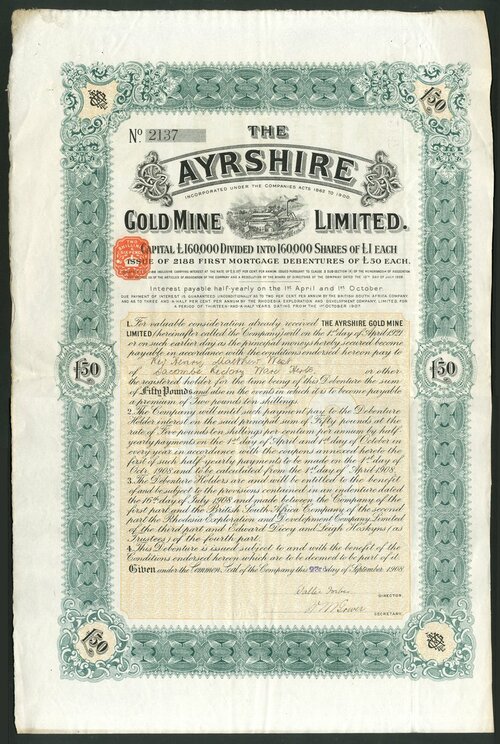 £50
£50
Nº 2137
THE
AYRSHIRE
INCORPORATED UNDER THE COMPANIES ACTS 1862 TO 1900.
GOLD MINE LIMITED.
CAPITAL £160,000 DIVIDED INTO 160,000 SHARES OF £1 EACH
ISSUE OF 2188 FIRST MORTGAGE DEBENTURES OF £50 EACH.
Interest payable half-yearly on the 1st April and 1st October.
DUE PAYMENT OF INTEREST IS GUARANTEED UNCONDITIONALLY AS TO TWO PER CENT. PER ANNUM BY THE BRITISH SOUTH AFRICA COMPANY,
AND AS TO THREE AND A HALF PER CENT. PER ANNUM BY THE RHODESIA EXPLORATION AND DEVELOPMENT COMPANY, LIMITED, FOR
A PERIOD OF THIRTEEN-AND-A-HALF YEARS, DATING FROM THE 1ST OCTOBER 1907.
1. For valuable consideration already received THE AYRSHIRE GOLD MINE
LIMITED (hereinafter called the Company) will on the 1st day of April 1921
or on such earlier day as the principal moneys hereby secured become
payable in accordance with the conditions endorsed hereon pay to
Rev. Henry Matthew West
of Sacombe Rectory Ware Herts. or other
the registered holder for the time being of this Debenture the sum
of Fifty Pounds and also in the events in which it is to become payable
a premium of Two pounds ten shillings.
2. The Company will until such payment pay to the Debenture
Holder interest on the said principal sum of Fifty pounds at the
rate of Five pounds ten shillings per centum per annum by half-
yearly payments on the 1st day of April and 1st day of October in
every year in accordance with the coupons annexed hereto the
first of such half-yearly payments to be made on the 1st day of
Octr. 1908 and to be calculated from the 1st day of April 1908.
3. The Debenture Holders are and will be entitled to the benefit
of and be subject to the provisions contained in an indenture dated
the 16th day of July 1908 and made between the Company of the
first part and the British South Africa Company of the second
part the Rhodesia Exploration and Development Company Limited
of the third part and Edward Dicey and Leigh Hoskyns (as
Trustees) of the fourth part.
4. This Debenture is issued subject to and with the benefit of the
Conditions endorsed hereon which are to be deemed to be part of it.
Given under the Common Seal of the Company this day of September 1908
DIRECTOR.
SECRETARY.
£50
£50
£50